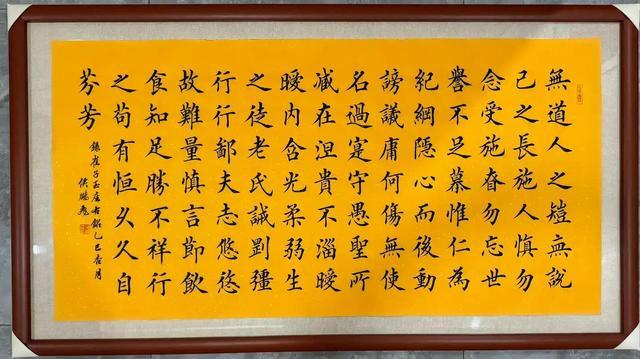 無道人之短無說
己之長施人慎勿
念受施昚勿忘世
譽不足慕惟仁為
紀綱隱心而後動
謗議庸何傷無使
名過寔守愚聖所
臧在涅貴不淄曖
曖內含光柔弱生
之徒老氏誡剛彊
行行鄙夫志悠悠
故難量慎言節飲
食知足勝不祥行
之苟有恒久久自
芬芳
錄崔子玉座右銘乙巳月
侯